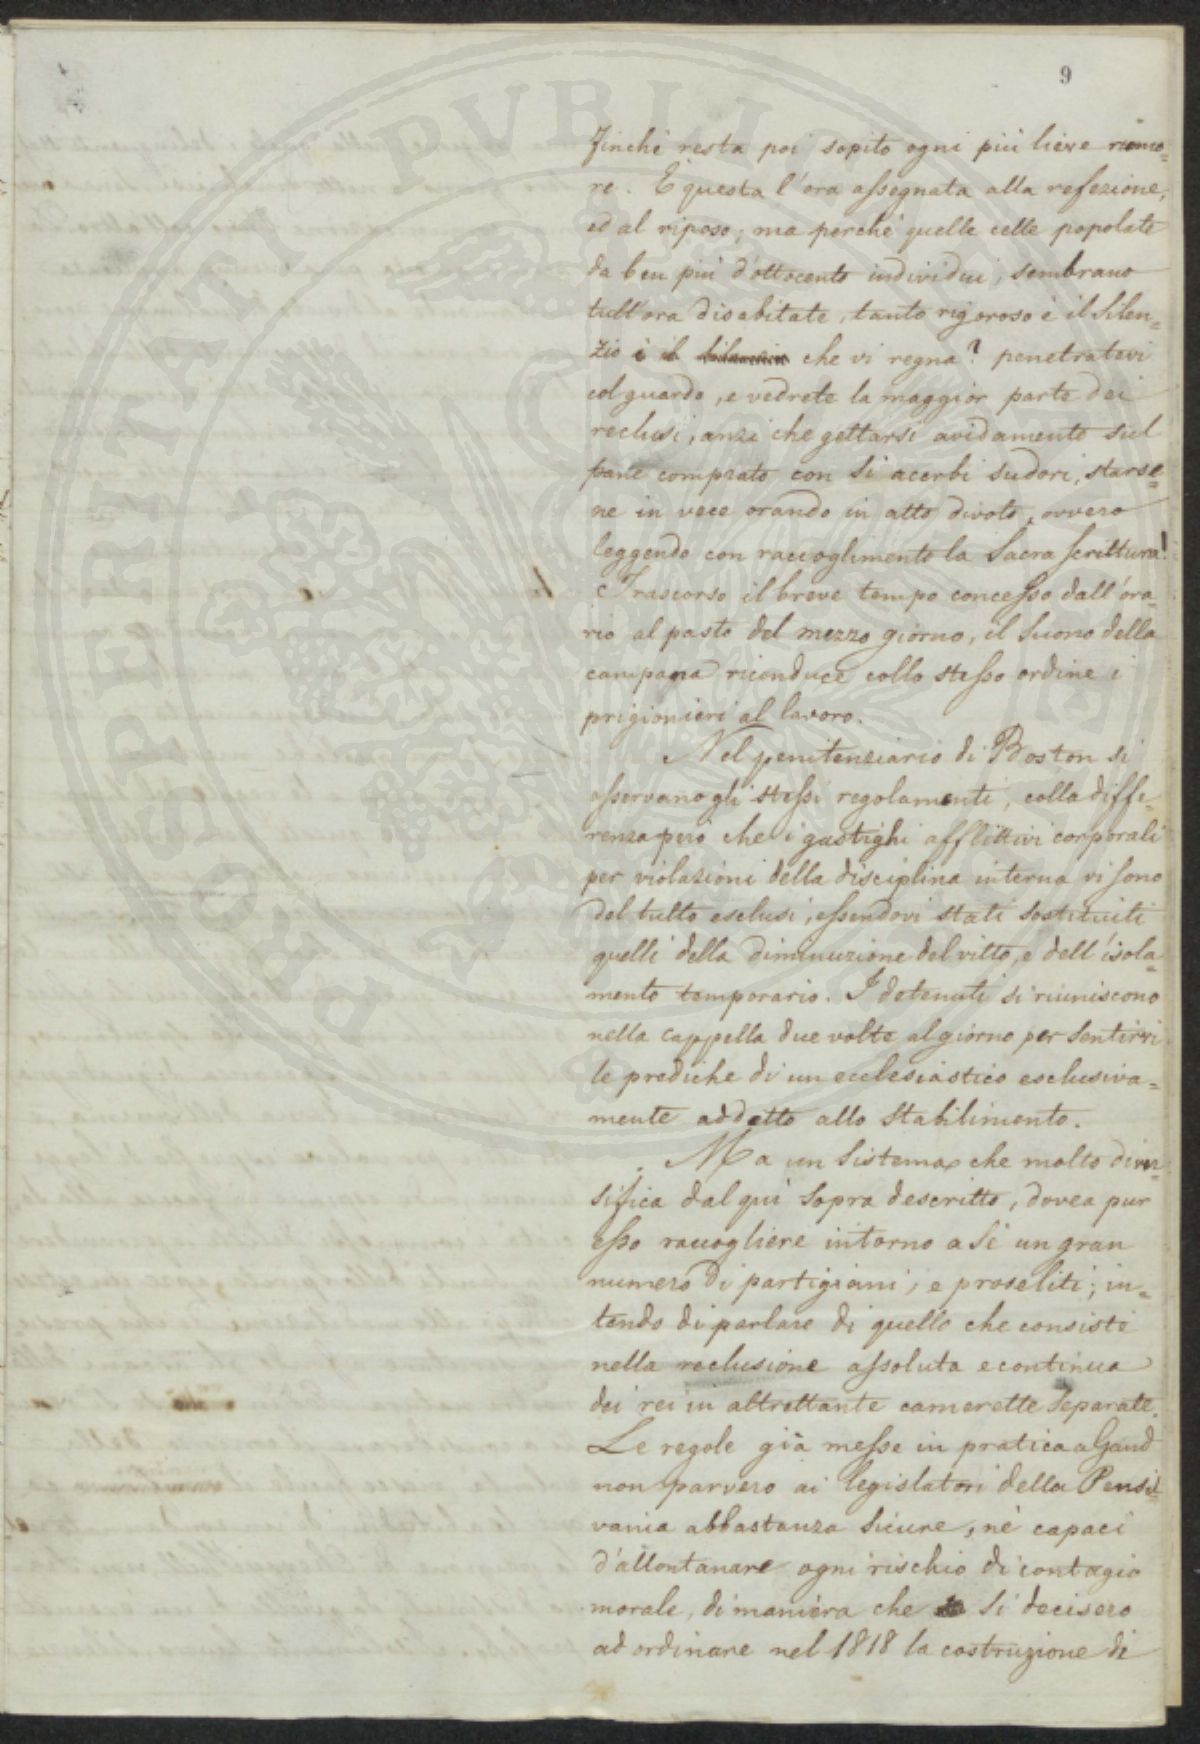 9
finchè resta poi sopito ogni più lieve rumo-
re. È questa l'ora assegnata alla refezione,
ed al riposo; ma perchè quelle celle popolate
da ben più d'ottocento individui, sembrano
tutt'ora disabitate, tanto rigoroso è il silen-
zio è il che vi regna? penetratevi
col guardo, e vedrete la maggior parte dei
reclusi, anzi che gettarsi avidamente sul
pane comprato con sì acerbi sudori, starse-
ne in vece orando in atto divoto, ovvero
leggendo con raccoglimento la Sacra Scrittura!
Trascorso il breve tempo concesso dall'ora-
rio al pasto del mezzo giorno, il suono della
campana riconduce collo stesso ordine i
prigionieri al lavoro.
Nel penitenziario di Boston si
osservano gli stessi regolamenti, colla diffe-
renza però che i gastighi afflittivi corporali
per violazioni della disciplina interna vi sono
del tutto esclusi, essendovi stati sostituiti
quelli della diminuzione del vitto, e dell'isola-
mento temporario. I detenuti si riuniscono
nella cappella due volte al giorno per sentirvi
le prediche di un ecclesiastico esclusiva-
mente addetto allo Stabilimento.
Ma un sistema che molto diver-
sifica dal quì sopra descritto, dovea pur
esso raccogliere intorno a sè un gran
numero di partigiani, e proseliti; in-
tendo di parlare di quello che consiste
nella reclusione assoluta e continua
dei rei in altrettante camerette separate.
Le regole già messe in pratica a Gand
non parvero ai legislatori della Pensil-
vania abbastanza sicure, nè capaci
d'allontanare ogni rischio di contagio
morale, di maniera che si decisero
ad ordinare nel 1818 la costruzione di
PROSPERITATI PVBLI